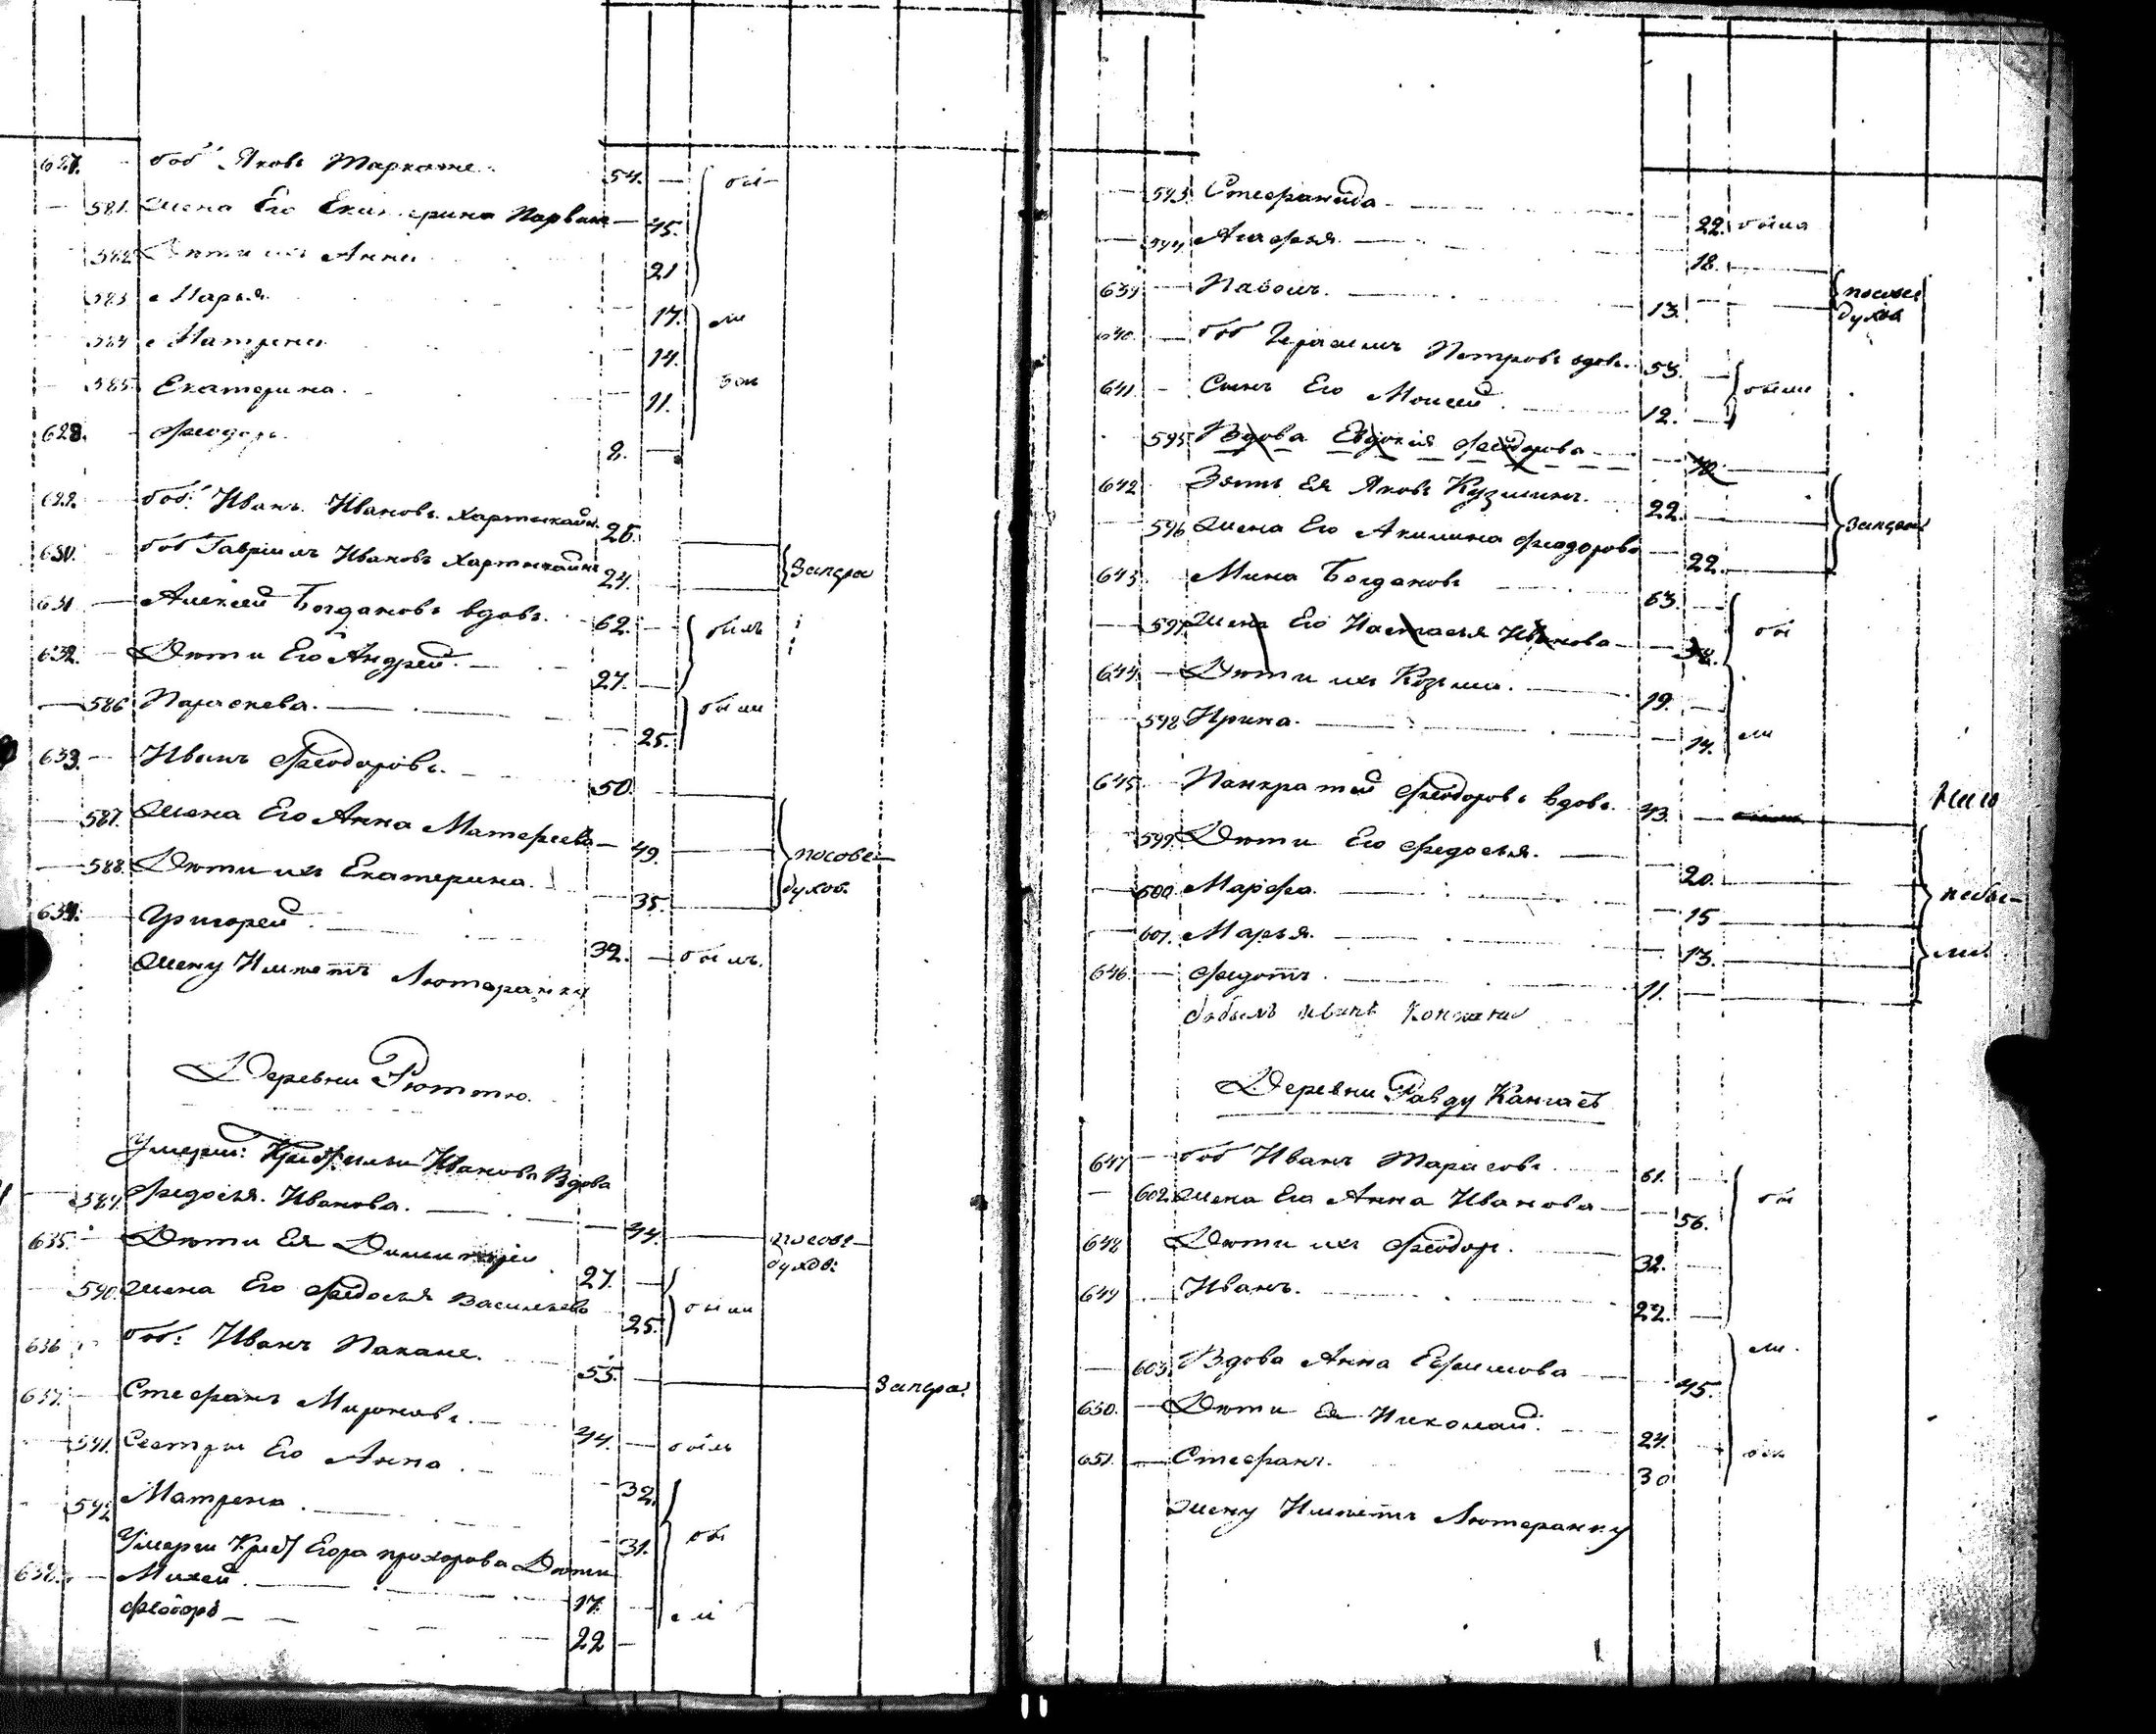 627. — боб. Яковъ Таркане. 54. — бы-
— 581. Жена Его Екатерина Парвiан — 45.
582. Дѣти ихъ Анна 21
583 Марья. 17. ли
584 Матрена 14.
585. Екатерина. 11. бы
628. — Феодоръ. 8. —
629. боб: Иванъ Ивановъ Хартикайн. 26.
630. боб Гаврiилъ Ивановъ Хартикайн 24. Запра
631 — Алексей Богдановъ вдовъ. 62. — былъ
632. — Дѣти Его Андрей. — 27. —
— 586 Параскева. — 25. были
633. — Иванъ Феодоровъ. — 50.
— 587. Жена Его Анна Матфеева — 49. посове-
— 588. Дѣти ихъ Екатерина. 35. духов.
634. Григорей. 32. — былъ.
Жену Имѣетъ Лютеранку
Деревни Рютттю.
Умерш: Крест Ивановъ Вдова
— 589. Федосья. Иванова. — 44. — посове-
духов:
635. — Дѣти Ея Димитрiй 27. —
590. Жена Его Федосья Васильева 25. были
636 боб: Иванъ Пакане. 55. — Запра:
637. — Стефанъ Мироновъ. — 44. — былъ
— 591. Сестры Его Анна. — 32.
592 Матрена. — 31. бы
Умерш Крест Егора прохорова Дѣти
638. — Михей. — 17. — ли
Феодоръ — 22 —
— 593. Стефанида — 22. была
— 594. Агафья. — 18. —
639 — Павелъ. — 13. — посове
духов
640. — боб Герасимъ Петровъ вдовъ. 53. —
641 — Сынъ Его Моисей. 12. — были
595. Вдова Евдокiя Феодорова —
642 Зять Ея Яковъ Кузминъ. 22. —
596 Жена Его Акилина Феодорова — 22. Запра
643. Мина Богдановъ 63. —
— 597. Жена Его Настасья Иванова — 38. бы
644. — Дѣти ихъ Козьма. — 19. —
598 Ирина. — 14. ли
645 — Панкратей Феодоровъ вдовъ. 43. —
599. Дѣти Его Федосья. — 20.
600 Марфа. — 15 — небы-
601. Марья. — 13. — ли
646. — Федотъ. 11. —
бобыль Иванъ
Деревни Равду Кангасъ
647 — боб Иванъ Тарасовъ. 61. —
— 602. Жена Его Анна Иванова — 56. бы
648 Дѣти ихъ Феодоръ. — 32. —
649 Иванъ. 22. —
— 603. Вдова Анна Ефимова — 45. ли.
650. — Дѣти Ея Николай. — 24. —
651. — Стефанъ. 30 бы
Жену Имѣетъ Лютеранку